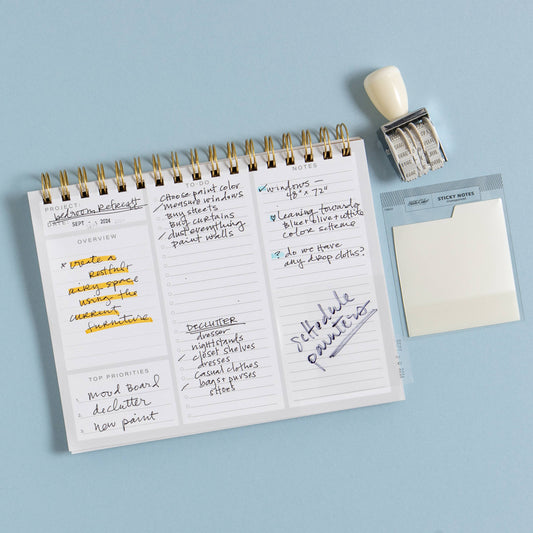 PROJECT
bedroom Retreat
DATE SEPT 1 2024
OVERVIEW
* create a
restful
airy space
using the
current
furniture
TOP PRIORITIES
1. mood Board
2. declutter
3. new paint
TO-DO
choose paint color
measure windows
buy sheets
buy curtains
dust everything
paint walls
DECLUTTER
dresser
nightstands
closet shelves
dresses
casual clothes
bags + purses
shoes
NOTES
windows
48" x 72"
leaning towards
blue + olive + white
color scheme
? do we have
any drop cloths?
schedule
painters
STICKY NOTES